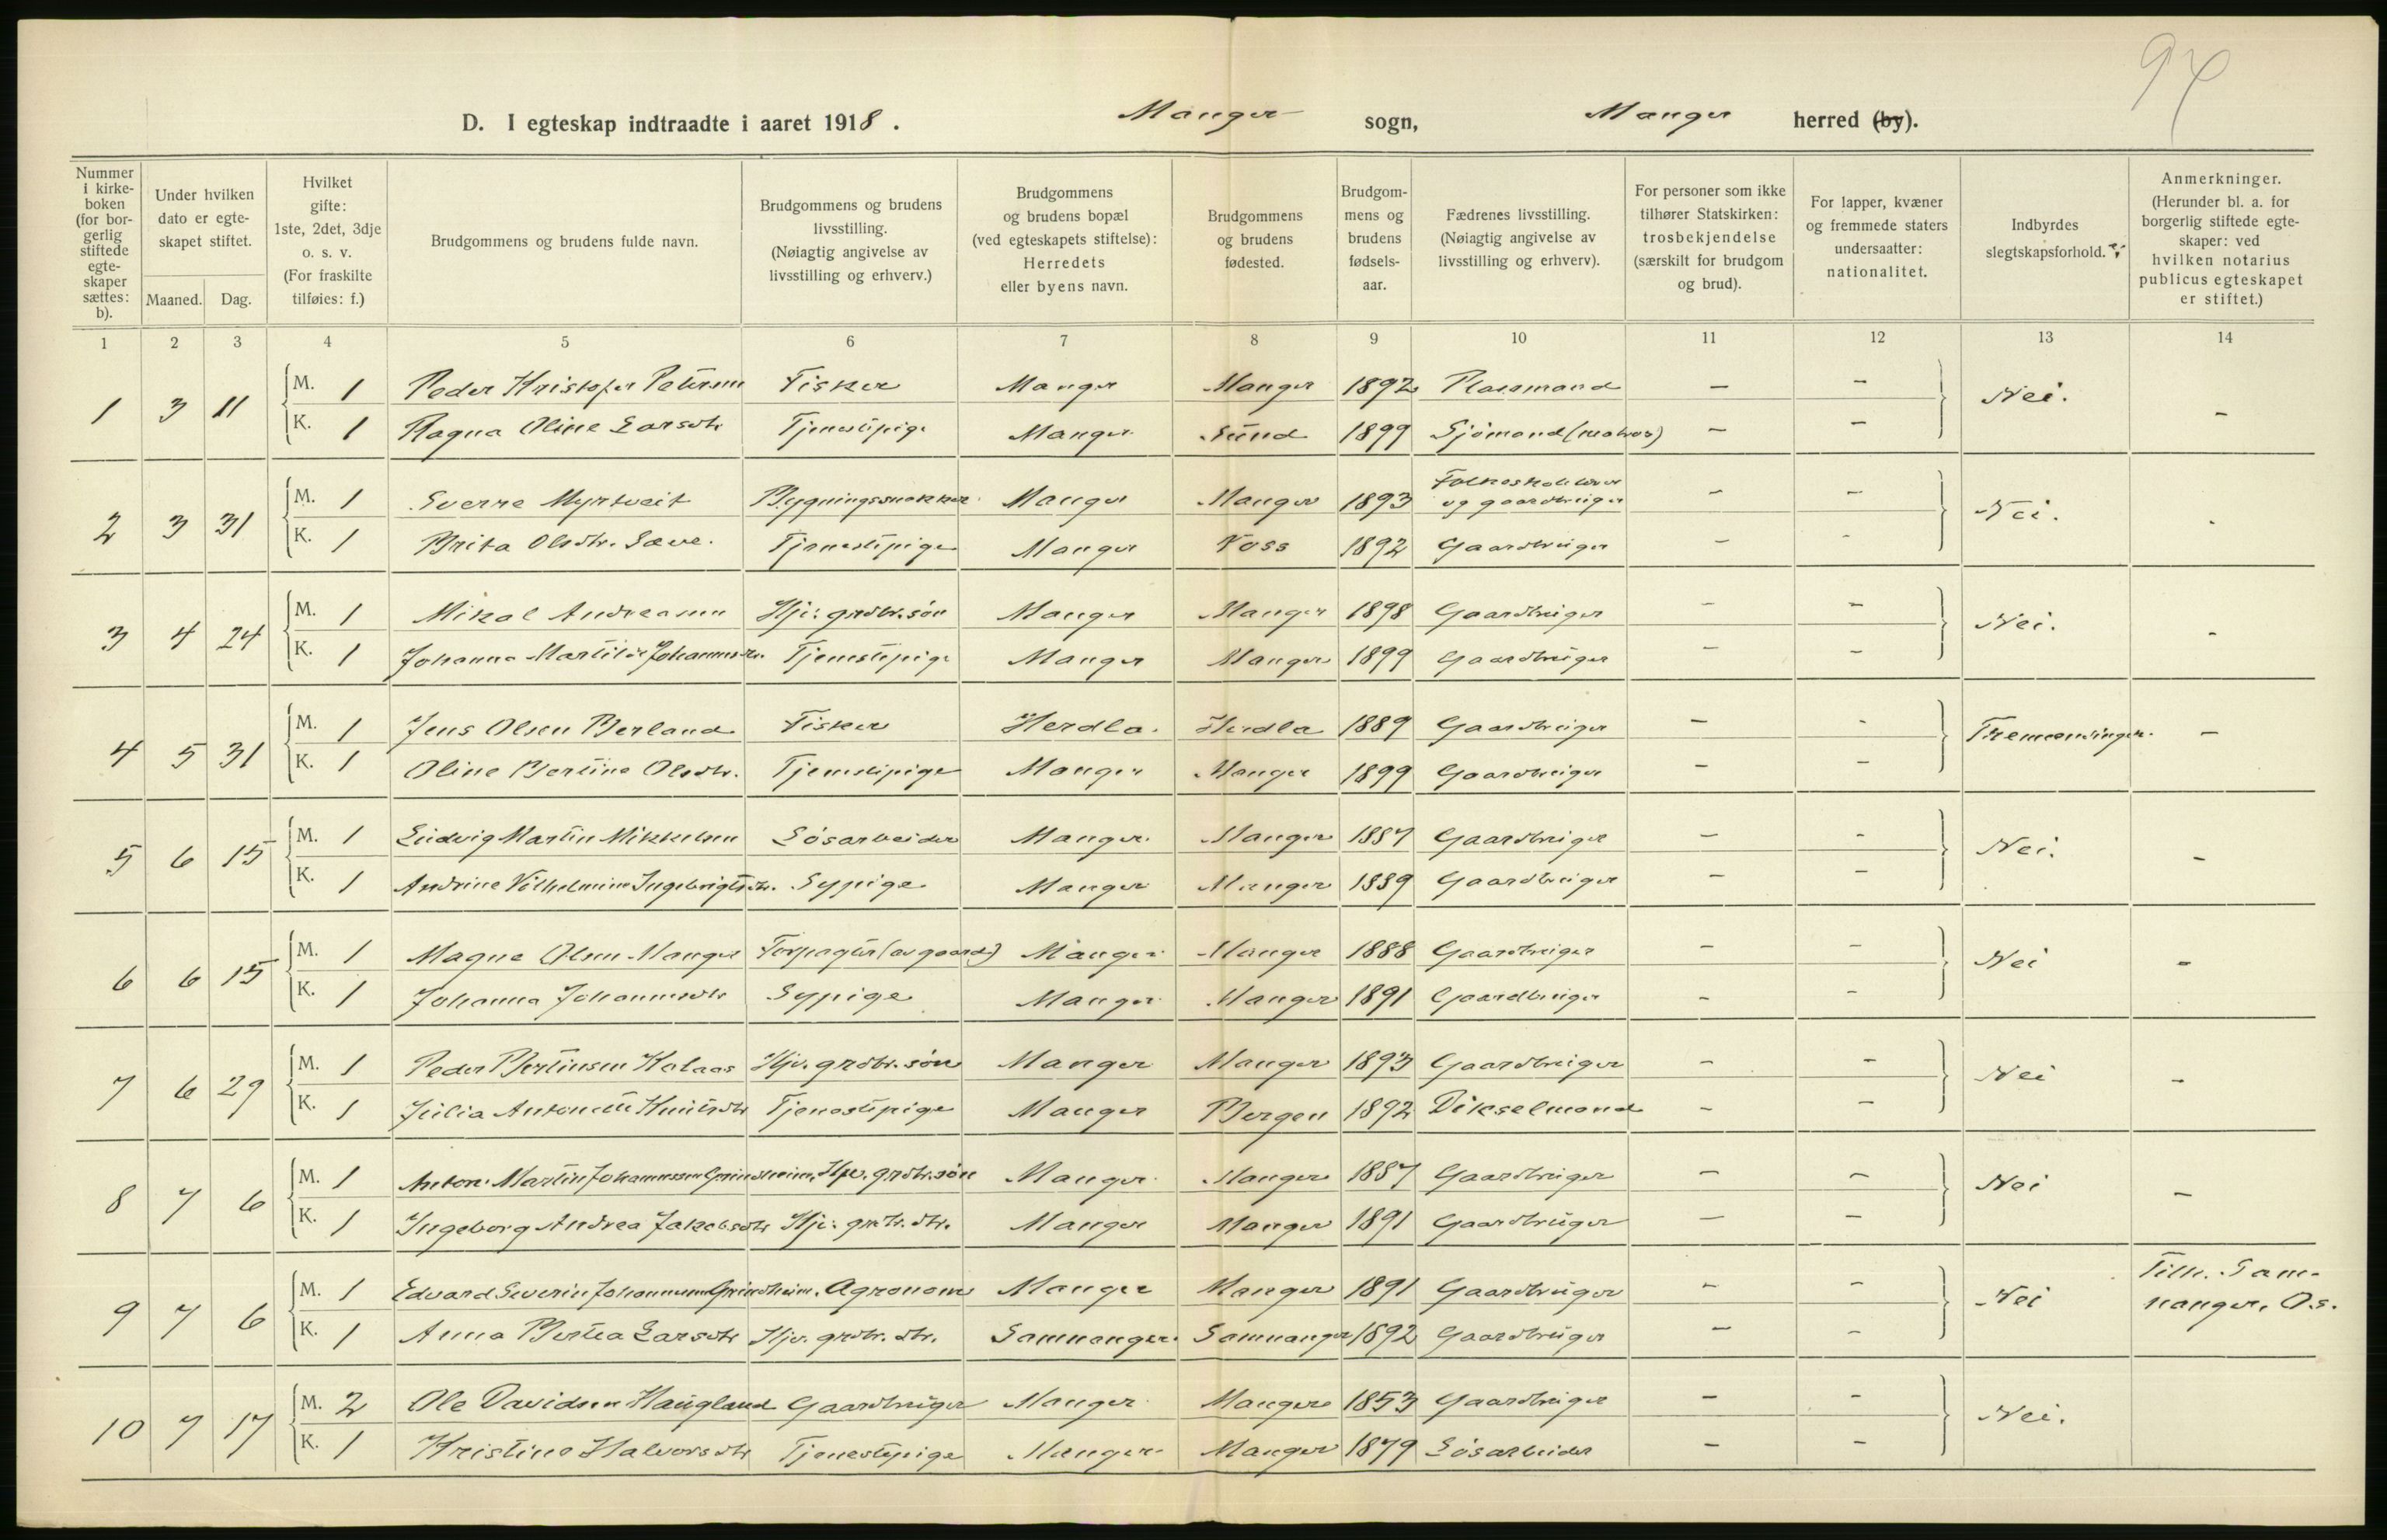 97
D. I egteskap indtraadte i aaret 1918. Manger sogn, Manger herred (by).
Nummer i kirke-boken (for bor-gerlig stiftede egte-skaper sættes: b). | Under hvilken dato er egte-skapet stiftet. Maaned. Dag. | Hvilket gifte: 1ste, 2det, 3dje o. s. v. (For fraskilte tilføies: f.) | Brudgommens og brudens fulde navn. | Brudgommens og brudens livsstilling. (Nøiagtig angivelse av livsstilling og erhverv.) | Brudgommens og brudens bopæl (ved egteskapets stiftelse): Herredets eller byens navn. | Brudgommens og brudens fødested. | Brudgom-mens og brudens fødsels-aar. | Fædrenes livsstilling. (Nøiagtig angivelse av livsstilling og erhverv). | For personer som ikke tilhører Statskirken: trosbekjendelse (særskilt for brudgom og brud). | For lapper, kvæner og fremmede staters undersaatter: nationalitet. | Indbyrdes slegtskapsforhold. | Anmerkninger. (Herunder bl. a. for borgerlig stiftede egte-skaper: ved hvilken notarius publicus egteskapet er stiftet.)
1 2 3 4 5 6 7 8 9 10 11 12 13 14
1 3 11 M. 1 Peder Kristofer Petersen Fisker Manger Manger 1892 Plassmand – – Nei. –
K. 1 Ragna Oline Larsdtr Tjenestepige Manger Sund 1899 Sjömand (matros) – –
2 3 31 M. 1 Sverre Myrtveit Bygningssnekker Manger Manger 1893 Folkeskolelærer og gaardbruger – – Nei. -
K. 1 Brita Olsdtr. Sæve. Tjenestepige Manger Voss 1892 Gaardbruger – -
3 4 24 M. 1 Mikal Andreassen Hj: grdbr. søn Manger Manger 1898 Gaardbruger – – Nei. -
K. 1 Johanna Martile Johannesdtr. Tjenestepige Manger Manger 1899 Gaardbruger – –
4 5 31 M. 1 Jens Olsen Berland Fisker Herdla. Herdla 1889 Gaardbruger – - Tremenninger. –
K. 1 Oline Bertine Olsdtr. Tjenestepige Manger Manger 1899 Gaardbruger – –
5 6 15 M. 1 Ludvig Martin Mikkelsen Løsarbeider Manger. Manger 1887 Gaardbruger – - Nei. –
K. 1 Andrine Vilhelmine Ingebrigtsdtr. Sypige Manger Manger 1889 Gaardbruger – –
6 6 15 M. 1 Magne Olsen Manger Forpagter (av gaard) Manger Manger 1888 Gaardbruger – – Nei -
K. 1 Johanna Johannesdtr Sypige Manger Manger 1891 Gaardbruger - –
7 6 29 M. 1 Peder Bertinsen Kalaas Hjv. grdbr. søn Manger Manger 1893 Gaardbruger – – Nei –
K. 1 Julia Antonette Knutsdtr Tjenestepige Manger Bergen 1892 Dikselmand – –
8 7 6 M. 1 Anton Martin Johannessen Grindheim. Hjv. grdbr. søn Manger Manger 1887 Gaardbruger – – Nei –
K. 1 Ingeborg Andrea Jakobsdtr Hj: grdbr. dtr. Manger Manger 1891 Gaardbruger – –
9 7 6 M. 1 Edvard Severin Johannessen Grindheim. Agronom Manger Manger 1891 Gaardbruger – – Nei Tilh. Sam-nanger, Os.
K. 1 Anna Bertea Larsdtr Hjv. grdbr. dtr. Samnanger. Samnanger 1892 Gaardbruger – –
10 7 17 M. 2 Ole Davidsen Haugland Gaardbruger Manger Manger 1853 Gaardbruger – – Nei.
K. 1 Kristine Halvorsdtr Tjenestepige Manger Manger 1879 Løsarbeider – –